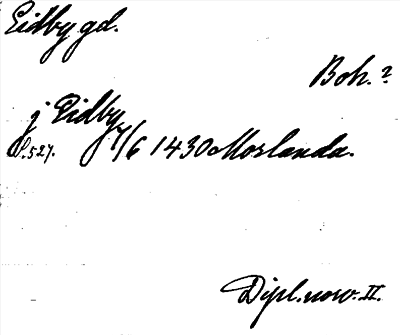 Eidby gd.
Boh. ?
j Eidby 7/6 1430 Morlanda.
S. 527.
Dipl. norv. II.